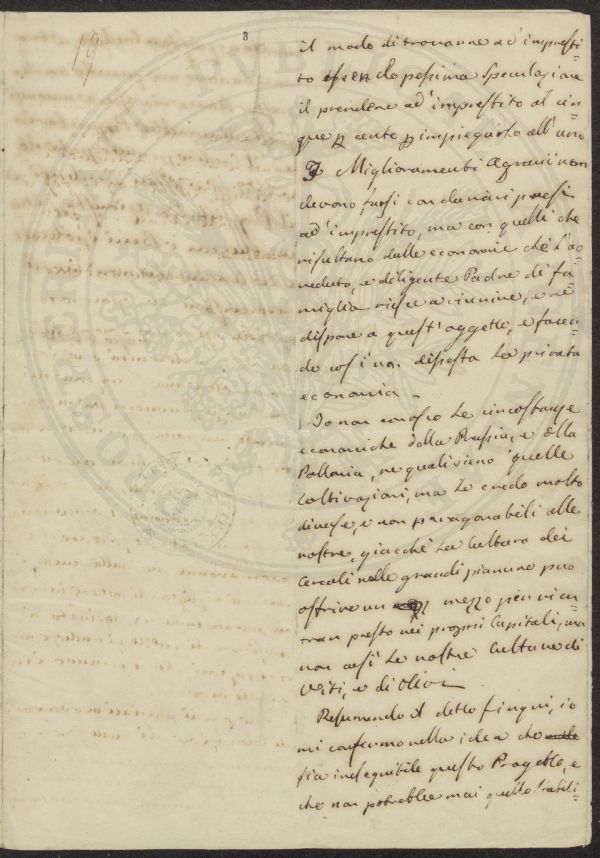 19
3
il modo di trovarne ad'impresti=
to essendo pessima speculazione
il prendere ad'imprestito al cin=
que p cento p impiegarlo all'uno
I Miglioramenti Agrarii non
devono farsi con danari presi
ad'imprestito, ma con quelli che
risultano dalle economie che l'ac=
veduto, e diligente Padre di fa=
miglia riesce a riunire, e ne
dispone a quest'oggetto, e facen=
do così non dissesta la privata
economia.
Io non conosco le circostanze
economiche della Prussia, e della
Pollonia, ne quali sieno quelle
Coltivazioni, ma le credo molto
diverse, e non paragonabili alle
nostre, giacchè la Cultura dei
Cereali nelle grandi pianure può
offrire un mezzo per rien=
trar presto nei proprj Capitali, ma
non così le nostre Culture di
Viti, e di Olivi
Resumendo il detto finqui, io
mi confermo nella idea che
sia ineseguibile questo Progetto, e
che non potrebbe mai quello stabili=